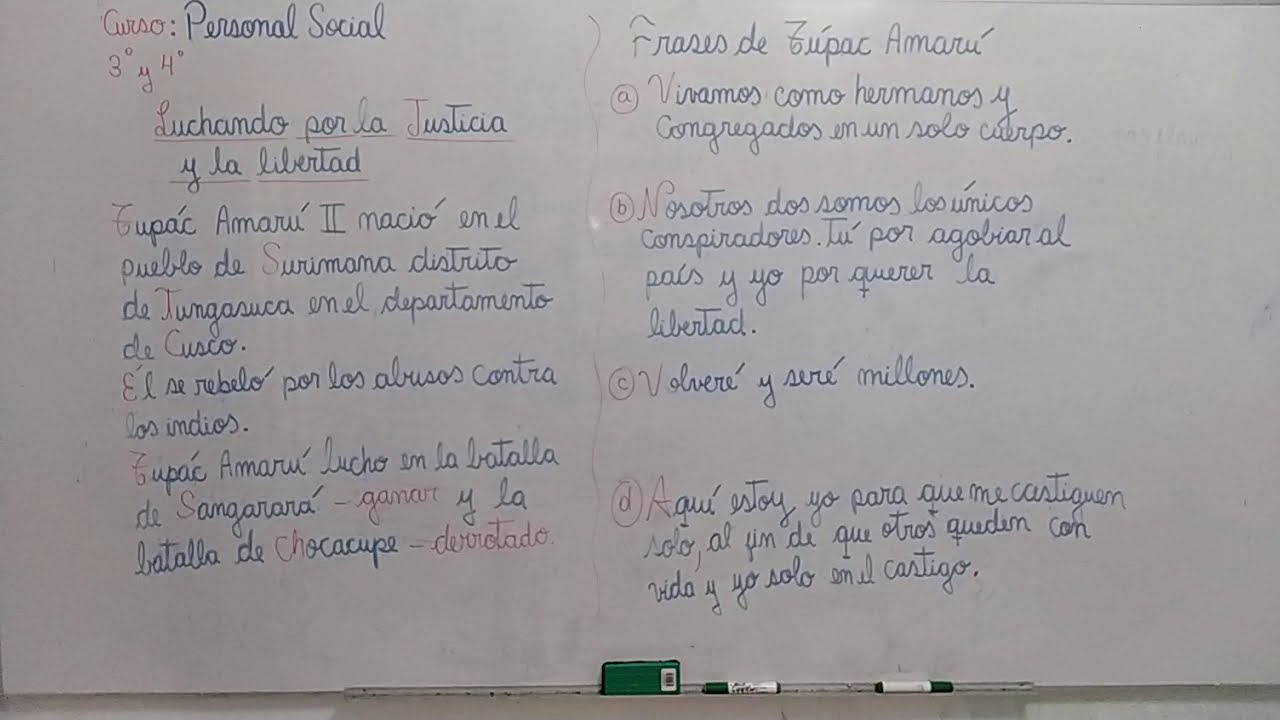 Curso: Personal Social
3° y 4°
Luchando por la Justicia
y la libertad
Tupác Amarú II nació en el
pueblo de Surimana distrito
de Tungasuca en el departamento
de Cusco.
Él se rebeló por los abusos contra
los indios.
Tupác Amarú lucho en la batalla
de Sangarará - ganar y la
batalla de Chocacupe - derrotado.
Frases de Túpac Amarú
a Vivamos como hermanos y
Congregados en un solo cuerpo.
b Nosotros dos somos los únicos
conspiradores. Tú por agobiar al
país y yo por querer la
libertad.
c Volveré y seré millones.
d Aquí estoy yo para que me castiguen
solo, al fin de que otros queden con
vida y yo solo en el castigo.